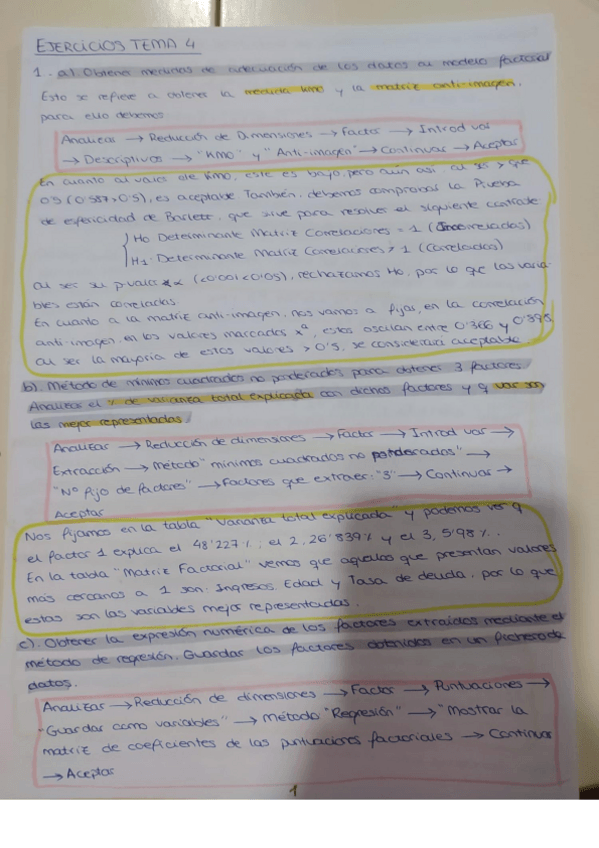 EJERCICIOS TEMA 4
1. a) Obtener medidas de adecuación de los datos al modelo factorial
Esto se refiere a obtener la medida kmo y la matriz anti-imagen,
para ello debemos
Analizar → Reducción de Dimensiones → Factor → Introd var
→ Descriptivos → "KMO" y "Anti-imagen" → Continuar → Aceptar
En cuanto al valor de kmo, este es bajo, pero aún así, al ser > que
0'5 (0'587>0'5), es aceptable También, debemos comprobar la Prueba
de esfericidad de Barlett, que sirve para resolver el siguiente contraste
H0 Determinante Matriz Correlaciones = 1 (Incorreladas)
H1: Determinante Matriz Correlaciones > 1 (Correladas)
al ser su pvalor < α (<0'001<0'05), rechazamos H0, por lo que las varia-
bles están correladas.
En cuanto a la matriz anti-imagen, nos vamos a fijar, en la correlación
anti-imagen, en los valores marcados xª, estos oscilan entre 0'366 y
al ser la mayoría de estos valores > 0'5, se considerará aceptable.
b). Método de mínimos cuadrados no ponderados, para obtener 3 factores.
Analizar el % de varianza total explicada con dichos factores y q var son
las mejor representadas.
Analizar → Reducción de dimensiones → Factor → Introd var →
Extracción → Método "mínimos cuadrados no ponderados" →
"Nº fijo de factores" → Factores que extraer: "3" → Continuar →
Aceptar
Nos fijamos en la tabla "Varianza total explicada" y podemos ver q
el factor 1 explica el 48'227%, el 2, 26'839% y el 3, 5'98%.
En la tabla "Matriz Factorial" vemos que aquellos que presentan valores
más cercanos a 1 son: Ingresos, Edad y Tasa de deuda, por lo que
estas son las variables mejor representadas.
c). Obtener la expresión numérica de los factores extraídos mediante el
método de regresión. Guardar los factores obtenidos en un fichero de
datos.
Analizar → Reducción de dimensiones → Factor → Puntuaciones →
"Guardar como variables" → Método "Regresión" → "Mostrar la
matriz de coeficientes de las puntuaciones factoriales → Continuar
→ Aceptar
1